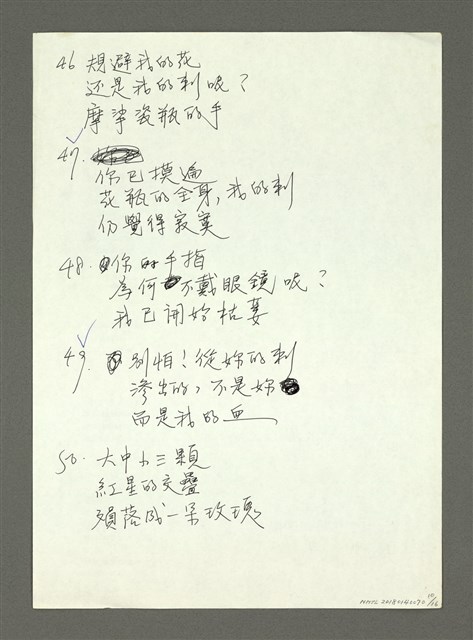 46 規避我的花
还是我的刺呢？
摩挲瓷瓶的手
47.
你已摸遍
花瓶的全身，我的刺
仍覺得寂寞
48. 你的手指
為何不戴眼鏡呢？
我已開始枯萎
49. 別怕！從妳的刺
滲出的，不是妳
而是我的血
50. 大中小三顆
紅星的交疊
殞落成一朵玫瑰
NMTL20180140070 10/16